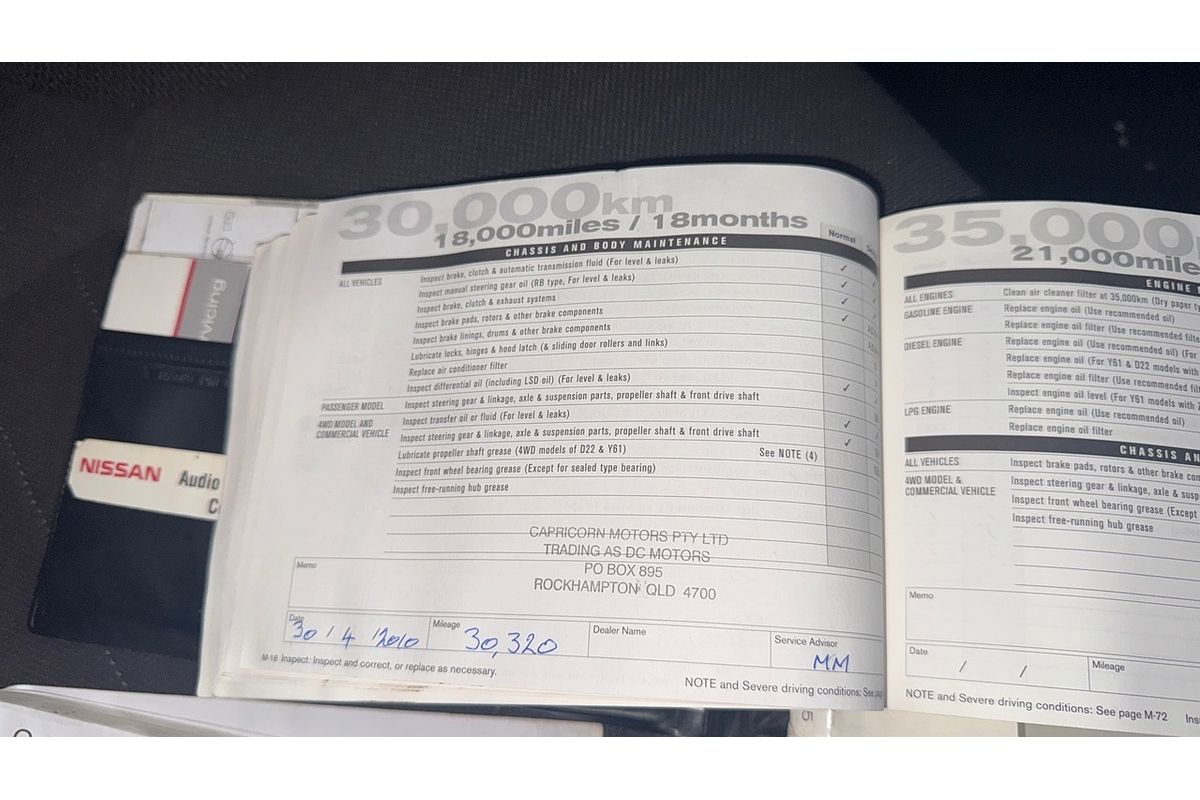 30,000km
18,000miles / 18months
CHASSIS AND BODY MAINTENANCE
Normal
ALL VEHICLES
Inspect brake, clutch & automatic transmission fluid (For level & leaks)
Inspect manual steering gear oil (RB type, For level & leaks)
Inspect brake, clutch & exhaust systems
Inspect brake pads, rotors & other brake components
Inspect brake linings, drums & other brake components
Lubricate locks, hinges & hood latch (& sliding door rollers and links)
Replace air conditioner filter
Inspect differential oil (including LSD oil) (For level & leaks)
PASSENGER MODEL
Inspect steering gear & linkage, axle & suspension parts, propeller shaft & front drive shaft
4WD MODEL AND
COMMERCIAL VEHICLE
Inspect transfer oil or fluid (For level & leaks)
Inspect steering gear & linkage, axle & suspension parts, propeller shaft & front drive shaft
Lubricate propeller shaft grease (4WD models of D22 & Y61) See NOTE (4)
Inspect front wheel bearing grease (Except for sealed type bearing)
Inspect free-running hub grease
CAPRICORN MOTORS PTY LTD
TRADING AS DC MOTORS
PO BOX 895
ROCKHAMPTON QLD 4700
Memo
Date
30 / 4 / 2010
Mileage
30,320
Dealer Name
Service Advisor
MM
M-18 Inspect: Inspect and correct, or replace as necessary.
NOTE and Severe driving conditions: See pag
35,000
21,000mile
ENGINE
ALL ENGINES
Clean air cleaner filter at 35,000km (Dry paper ty
GASOLINE ENGINE
Replace engine oil (Use recommended oil)
Replace engine oil filter (Use recommended filte
DIESEL ENGINE
Replace engine oil (Use recommended oil) (For
Replace engine oil (For Y61 & D22 models with
Replace engine oil filter (Use recommended fil
Inspect engine oil level (For Y61 models with
LPG ENGINE
Replace engine oil (Use recommended oil)
Replace engine oil filter
CHASSIS AN
ALL VEHICLES
Inspect brake pads, rotors & other brake con
4WD MODEL &
COMMERCIAL VEHICLE
Inspect steering gear & linkage, axle & susp
Inspect front wheel bearing grease (Except
Inspect free-running hub grease
Memo
Date
/ /
Mileage
NOTE and Severe driving conditions: See page M-72 Ins
vicing
NISSAN
Audio
C